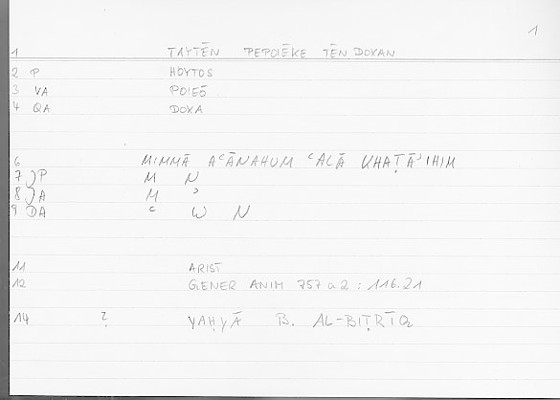 1
1 TAYTĒN PEPOIĒKE TĒN DOXAN
2 P HOYTOS
3 VA POIEŌ
4 QA DOXA
6 MIMMĀ AʿĀNAHUM ʿALĀ KHAṬĀʾIHIM
7 )P M N
8 )A M ʾ
9 DA ʿ W N
11 ARIST
12 GENER ANIM 757 a 2 : 116.21
14 ? YAḤYĀ B. AL-BIṬRĪQ